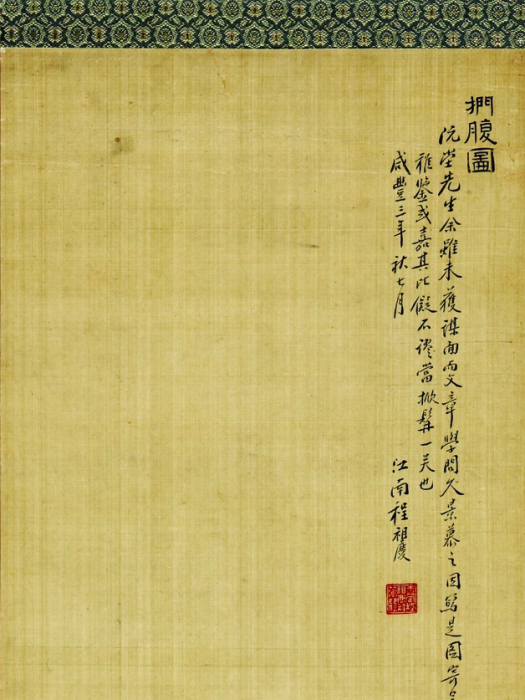 捫腹圖
沅堂先生余雖未獲謀面而文章學問久景慕之因寫是圖寄
雅鑒或嘉其比儗不謬當掀髯一笑也
咸豐三年秋七月
江南程祖慶